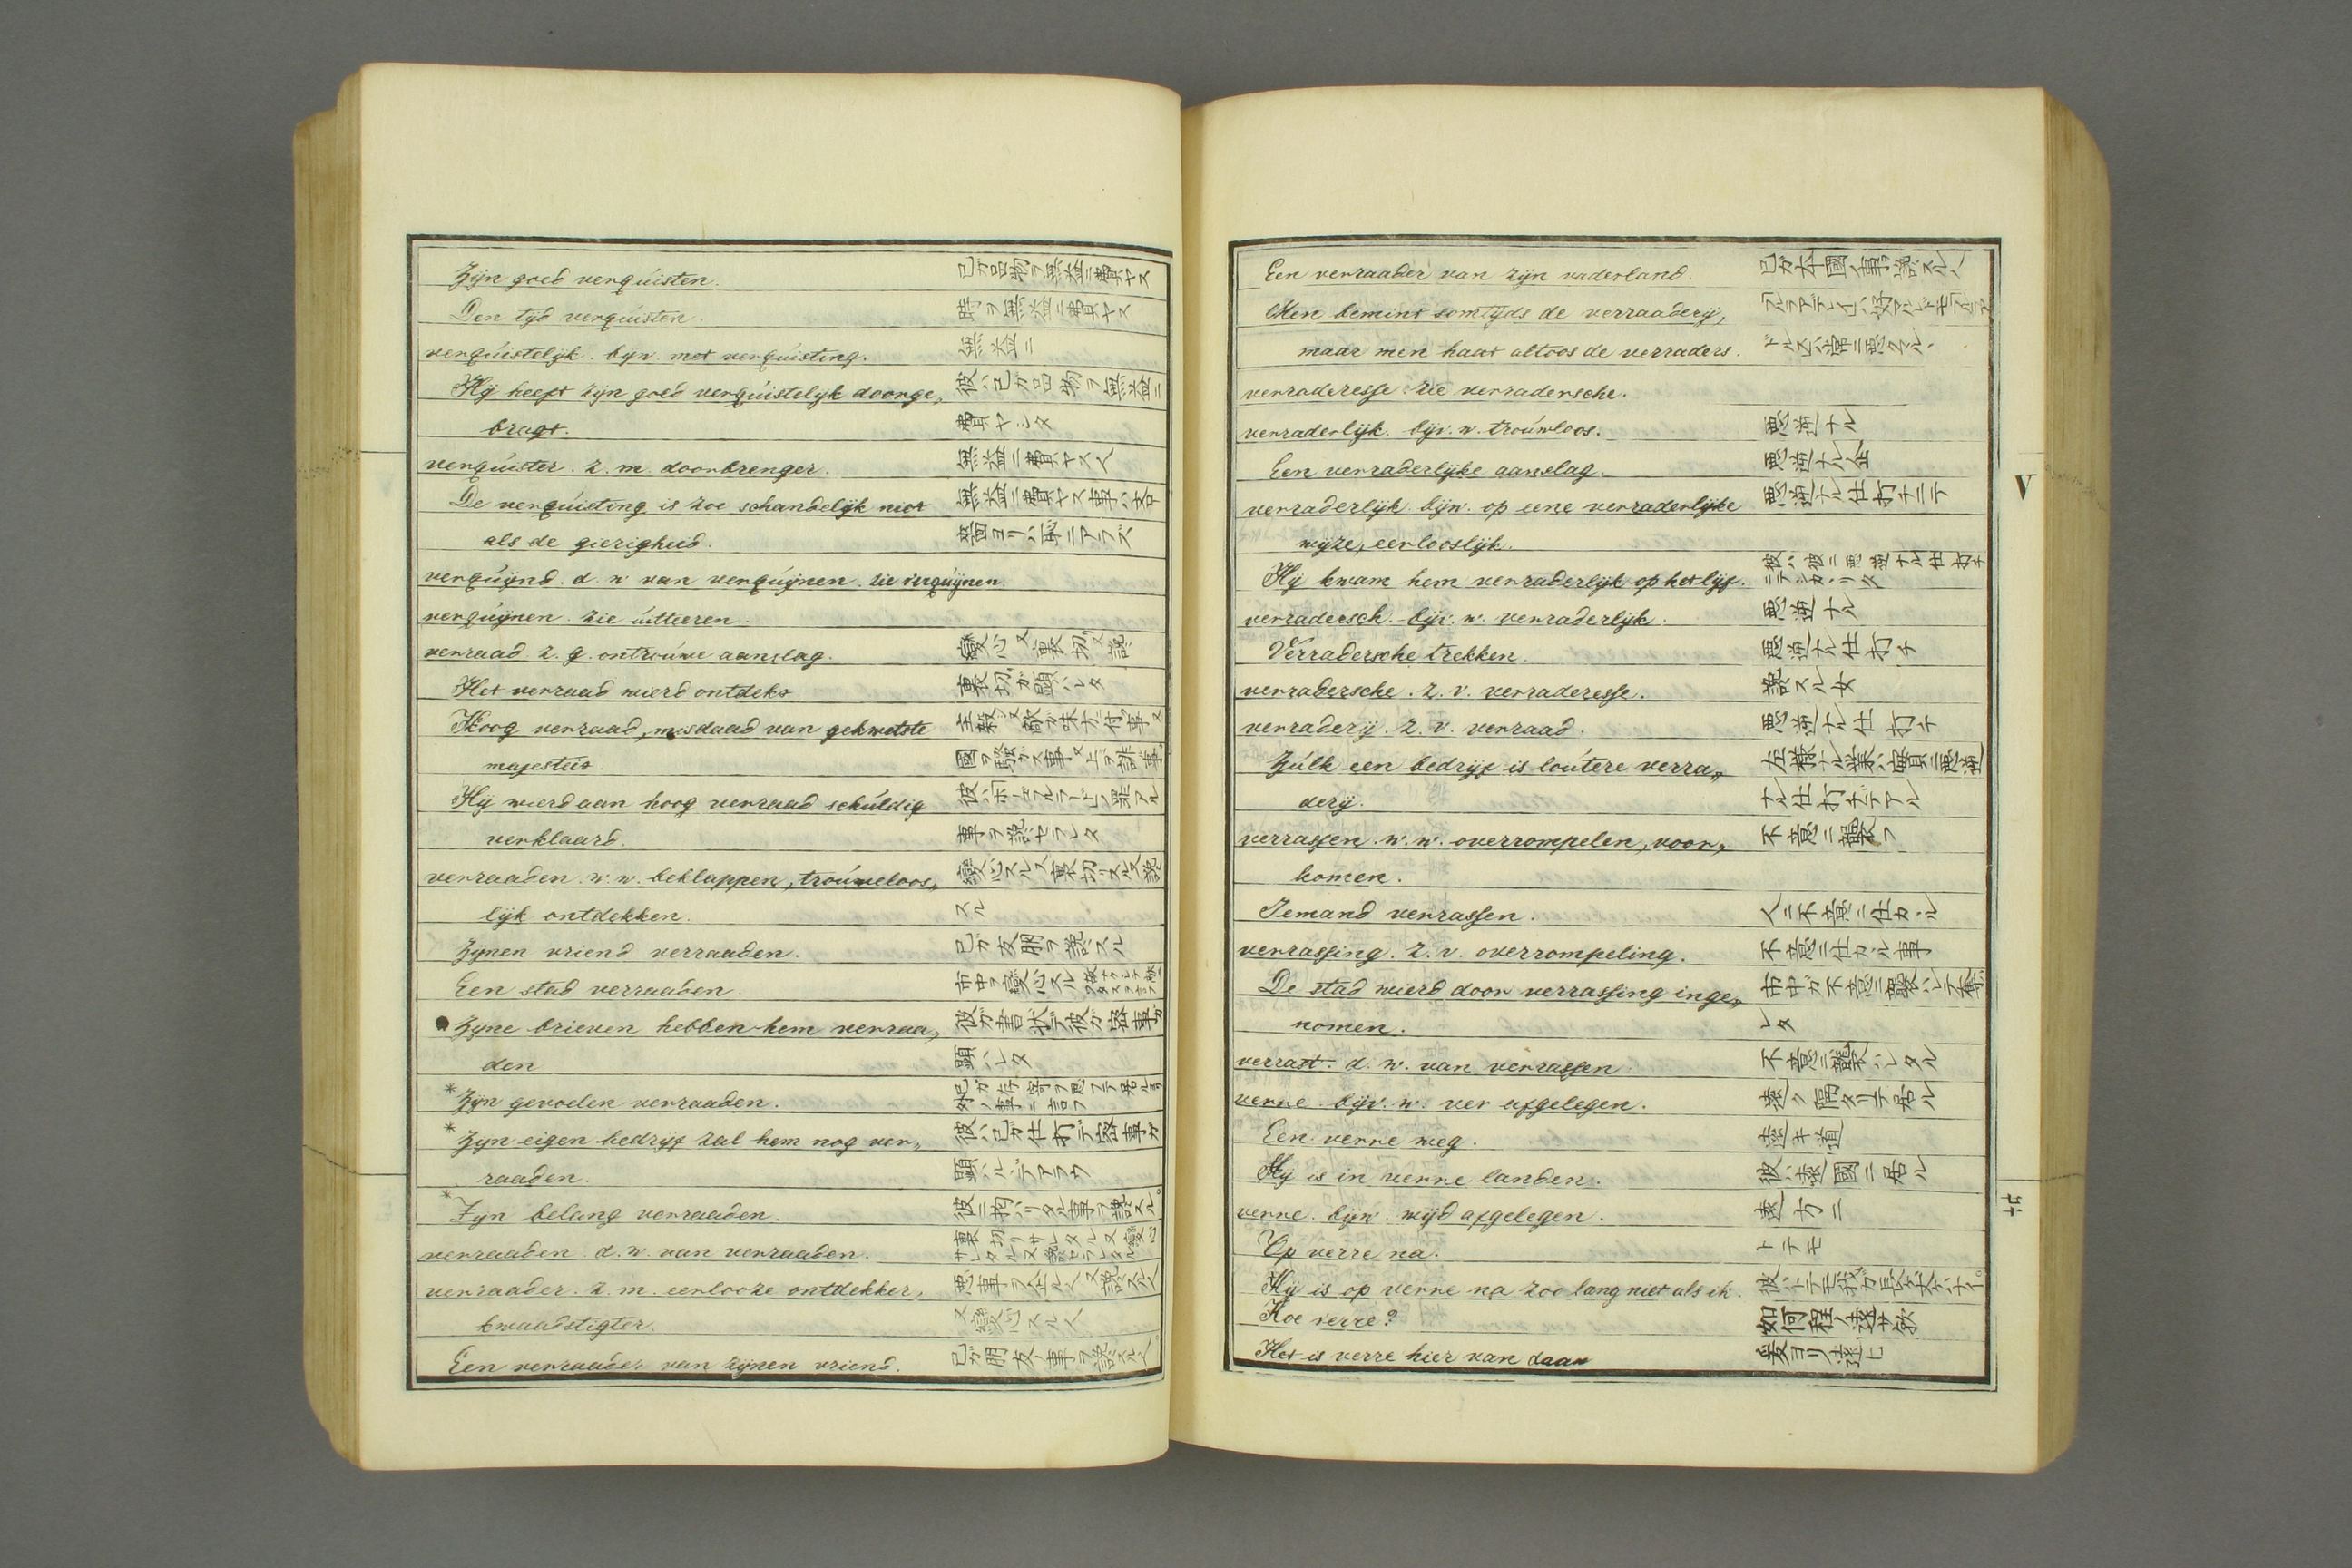 Zijn goed verquisten. 己ガ品物ヲ無益ニ費ヤス
Den tijd verquisten. 時ヲ無益ニ費ヤス
verquistelijk. bijw. met verquisting. 無益ニ
Hij heeft zijn goed verquistelijk doorge„ 彼ハ己ガ品物ヲ無益ニ
bragt. 費ヤシタ
verquister. z. m. doorbrenger. 無益ニ費ヤス人
De verquisting is zoo schandelijk niet 無益ニ費ヤス事ハ
als de gierigheid. ヨリハ恥ニアラズ
verquijnd. d. w. van verquijnen. zie verquijnen.
verquijnen. zie uitteeren.
verraad. z. g. ontrouwe aanslag. 變心又裏切又
Het verraad wierd ontdekt 裏切ガ顕ハレタ
Hoog verraad, misdaad van gekwetste
majesteit. 國ヲ騒ガス事
Hij wierd aan hoog verraad schuldig
verklaard.
verraaden. w. w. beklappen, trouweloos„
lijk ontdekken. スル
Zijnen vriend verraaden. 己ガ友朋ヲ スル
Een stad verraaden. 市中ヲ變心スル
Zijne brieven hebben hem verraa„ 彼ガ書状デ彼ガ密事ガ
den 顕ハレタ
* Zijn gevoelen verraaden.
* Zijn eigen bedrijf zal hem nog ver„ 彼ハ己ガ仕打デ密事ガ
raaden. 顕ハルデアラウ
* Zijn belang verraaden.
verraaden. d. w. van verraaden.
verraader. z. m. eerlooze ontdekker, 悪事ヲ企ル人
kwaadstigter. 又變心スル人
Een verraader van zijnen vriend. 己ガ朋友ノ事ヲ スル人
Een verraader van zijn vaderland. 己ガ本國ノ事ヲ スル人
Men bemint somtijds de verraaderij,
maar men haat altoos de verraders. ハ常ニ悪クム
verraderesse zie verradersche.
verraderlijk. bijv. w. trouwloos. 悪逆ナル
Een verraderlijke aanslag. 悪逆ナル企
verraderlijk. bijw. op eene verraderlijke 悪逆ナル仕打チニテ
wijze, eerlooslijk.
Hij kwam hem verraderlijk op het lijf. 彼ハ彼ニ悪逆ナル仕打チ
ニテシカカリタ
verradersch. bijv. w. verraderlijk. 悪逆ナル
Verradersche trekken. 悪逆ナル仕打チ
verradersche. z. v. verraderesse. スル女
verraderij. z. v. verraad. 悪逆ナル仕打チ
Zulk een bedrijf is loutere verra„ 左様ナル業ハ實ニ悪逆
derij. ナル仕打チデアル
verrassen. w. w. overrompelen, voor„ 不意ニ襲フ
komen.
Iemand verrassen. 人ニ不意ニ仕カカル
verrassing. z. v. overrompeling. 不意ニ仕カカル事
De stad wierd door verrassing inge„ 市中ガ不意ニ襲ハレテ奪ハ
nomen. レタ
verrast. d. w. van verrassen 不意ニ襲ハレタル
verre. bijv. w. ver afgelegen. 遠ク隔タリテ居ル
Een verre weg. 遠キ道
Hij is in verre landen. 彼ハ遠國ニ居ル
verre. bijw. wijd afgelegen. 遠方ニ
Op verre na. トテモ
Hij is op verre na zoo lang niet als ik.
Hoe verre? 如何程ノ遠サ歟
Het is verre hier van daan 爰ヨリ遠ヒ
V